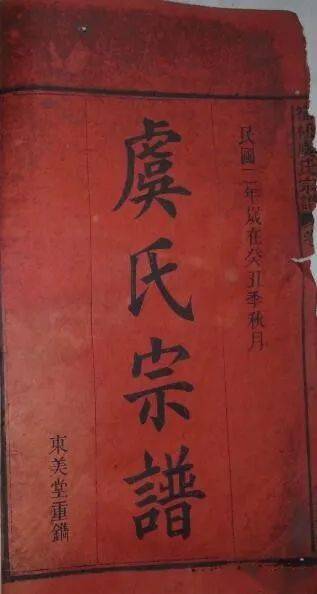 民國二年歲在癸丑季秋月
虞氏宗譜
東美堂重鐫